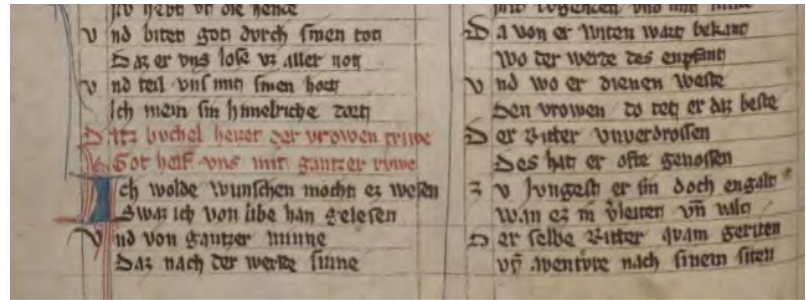 Vnd biten got durch sinen tot
Daz er vns lose vz aller not
Vnd teil vns mit sinen hort
Ich mein sin himelriche dort
Ditz buchel heizet der vrowen triwe
Got helf vns mit gantzer rvwe
Ich wolde wunschen mocht ez wesen
Swaz ich von libe han gelesen
Vnd von gantzer minne
Daz nach der werlte sinne
Da von er witen wart bekant
Wo der werde des enpfant
Vnd wo er dienen weste
Den vrowen do tet er daz beste
Der Ritter vnverdrossen
Des hat er ofte genossen
Zv Jvngest er sin doch engalt
Wan ez in vñ
Der selbe Ritter qvam geriten
vñ aventvre nach sinem siten